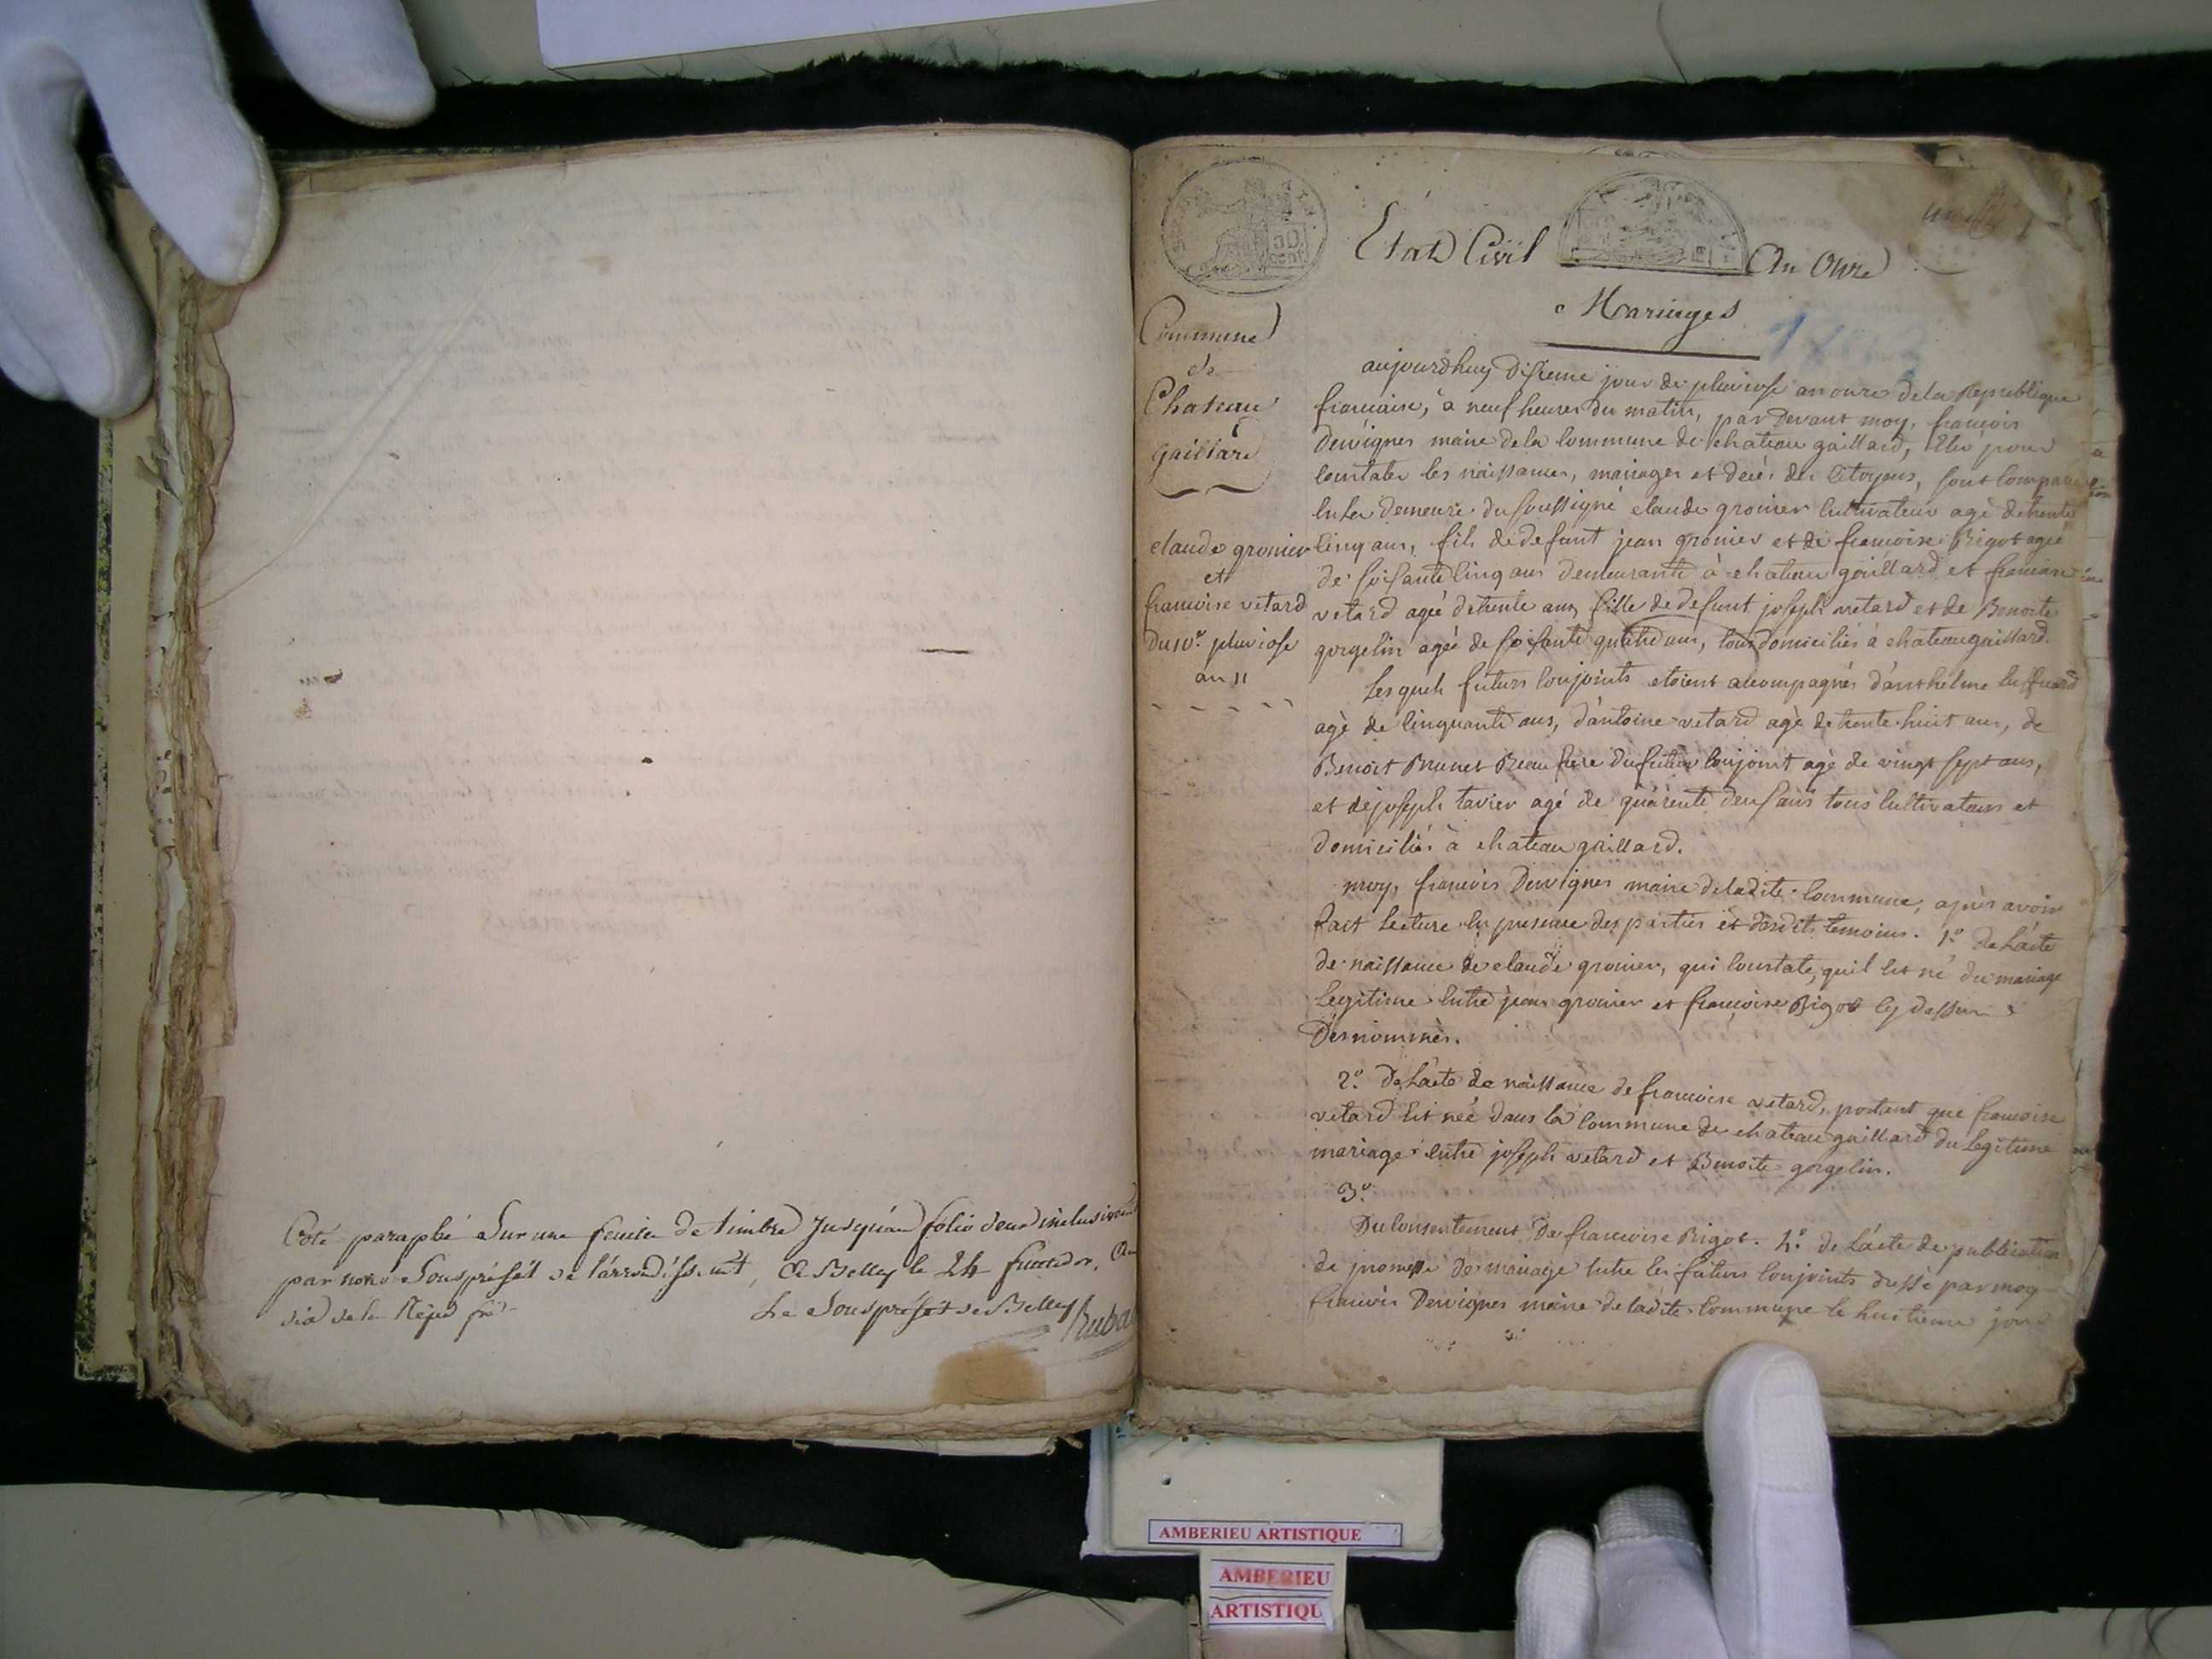 Coté paraphé Sur une feuille de timbre Jusqu'au folio deux inclusivement
par nous Sous préfét de l'arrondissement, A Belley le 24 fructidor, An
dix de la Répub fr
Le Sous préfet de Belley
Ruba
Etat Civil An Onze
Mariages
Commune
de
Chateau
gaillard
claude gronier
et
francoise vetard
du 10e pluviose
an 11
aujourdhuy dixieme jour de pluviose an onze de la Republique
francaise, à neuf heures du matin, par devant moy, francois
Dervignes maire de la Commune de chateau gaillard, Elu pour
Constater les naissances, mariages et decés des Citoyens, sont Comparu
En la demeure du soussigné claude gronier Cultivateur agé de trente
Cinq ans, fils de defunt jean gronier et de francoise Bigot agée
de soisante Cinq ans demeurante à chateau gaillard et francoise
vetard agée de trente ans fille de defunt joseph vetard et de Benoite
gorgelin agée de soisante quatre ans, tous domiciliés à chateau gaillard.
Lesquels futurs Conjoints etoient accompagnés d'anthelme
agé de Cinquante ans, d'antoine vetard agé de trente huit ans, de
Benoit Brunet Beau frere du futur Conjoint agé de vingt sept ans,
et de joseph tavier agé de quarente deux ans tous Cultivateurs et
domiciliés à chateau gaillard.
moy, francois Dervignes maire de ladite Commune, après avoir
fait Lecture En presence des parties et desdits temoins. 1.o de L'acte
de naissance de claude gronier, qui Constate, quil Est né du mariage
Legitime Entre jean gronier et francoise Bigot Cy dessus
Dénommés.
2.o De L'acte de naissance de francoise vetard, portant que francoise
vetard Est née dans la Commune de chateau gaillard du Legitime
mariage Entre joseph vetard et Benoite gorgelin.
3.o
Du Consentement De francoise Bigot. 4.o de L'acte de publication
de promesse de mariage Entre les futurs Conjoints dressé par moy
francois Dervignes maire de ladite Commune le huitieme jour
AMBERIEU ARTISTIQUE
AMBERIEU
ARTISTIQU